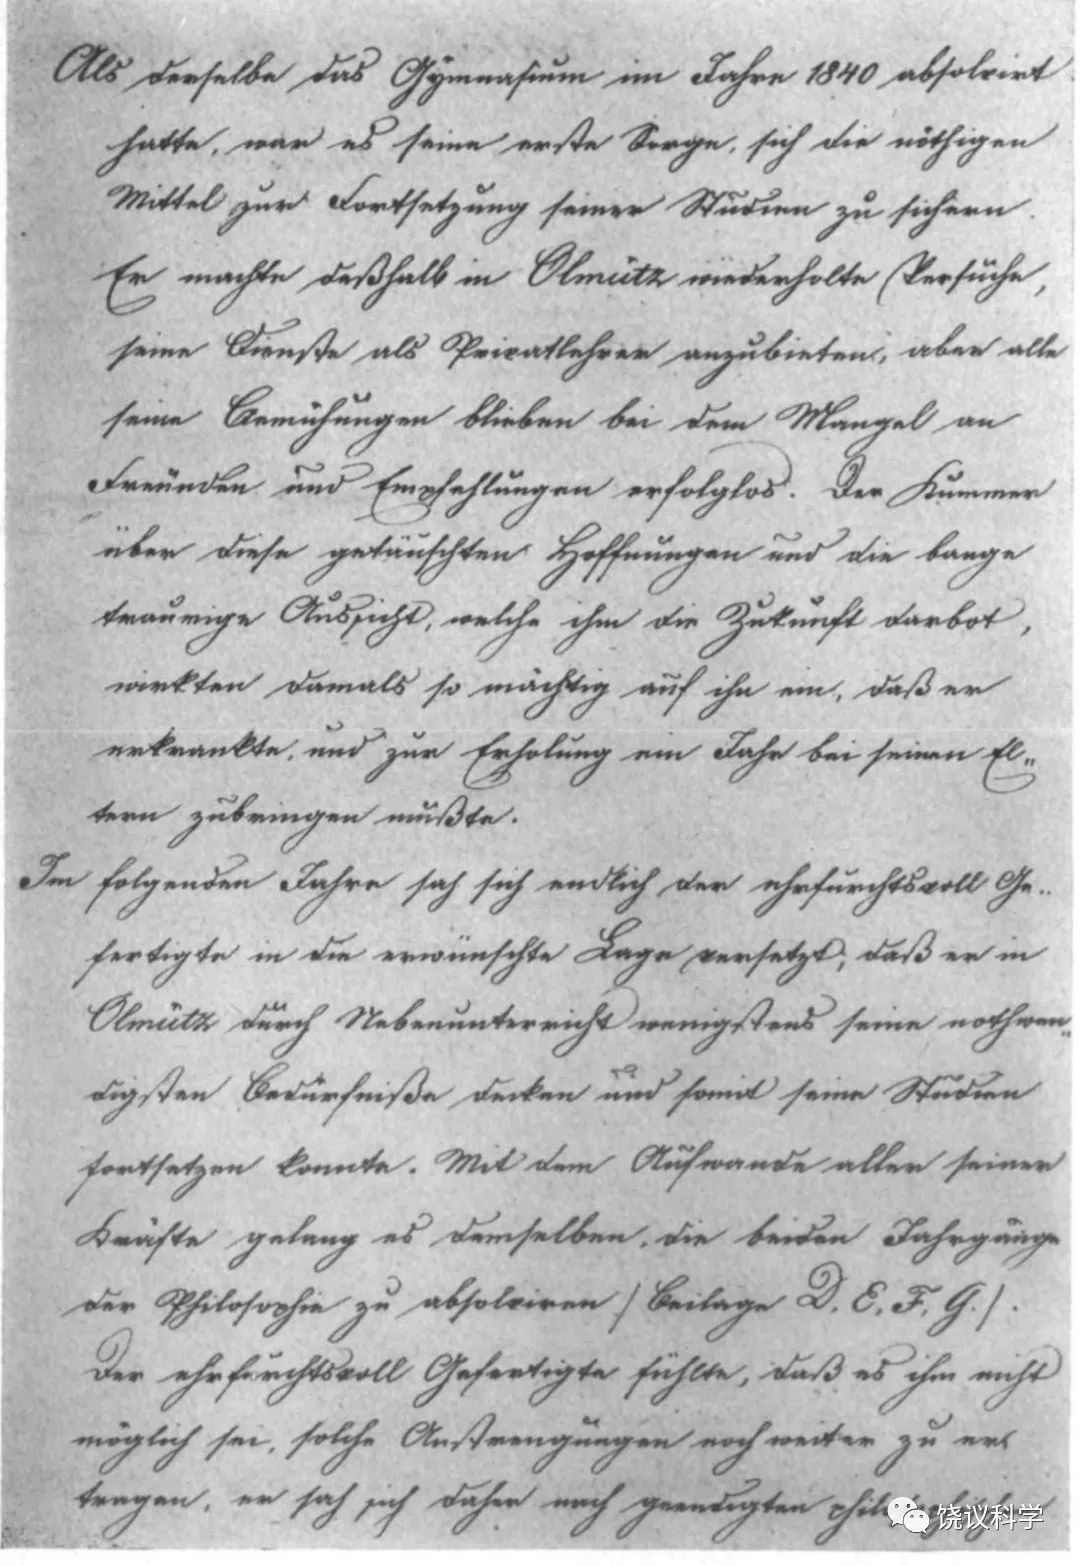 Als derselbe das Gymnasium im Jahre 1840 absolvirt
hatte, war es seine erste Sorge, sich die nöthigen
Mittel zur Fortsetzung seiner Studien zu sichern.
Er machte deßhalb in Olmütz wiederholte Versuche,
seine Dienste als Privatlehrer anzubieten, aber alle
seine Bemühungen blieben bei dem Mangel an
Freunden und Empfehlungen erfolglos. Der Kummer
über diese getäuschten Hoffnungen und die bange
traurige Aussicht, welche ihm die Zukunft darbot,
wirkten damals so mächtig auf ihn ein, daß er
erkrankte, und zur Erholung ein Jahr bei seinen El-
tern zubringen mußte.
Im folgenden Jahre sah sich endlich der ehrfurchtsvoll Ge-
fertigte in die erwünschte Lage versetzt, daß er in
Olmütz durch Nebenunterricht wenigstens seine nothwen-
digsten Bedürfniße decken und somit seine Studien
fortsetzen konnte. Mit dem Aufwande aller seiner
Kräfte gelang es demselben, die beiden Jahrgänge
der Philosophie zu absolviren / Beilage D. E. F. G. /.
Der ehrfurchtsvoll Gefertigte fühlte, daß es ihm nicht
möglich sei, solche Anstrengungen noch weiter zu er-
tragen, er sah sich daher nach geendigten
饶议科学